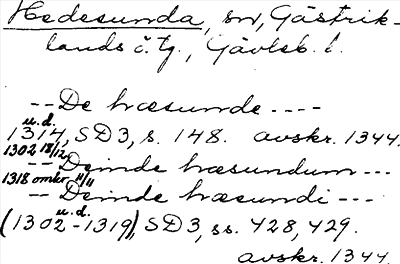 Hedesunda, sn, Gästrik-
lands ö. tg., Gävleb. l.
-- De hæsunde ----
u.d.
1314, SD3, s. 148. avskr. 1344.
1302 18/12
-- Deinde hæsundum ---
1318 omkr. 11/11
-- Deinde hæsundi ---
u.d.
(1302-1319), SD3, ss. 428, 429.
avskr. 1344.